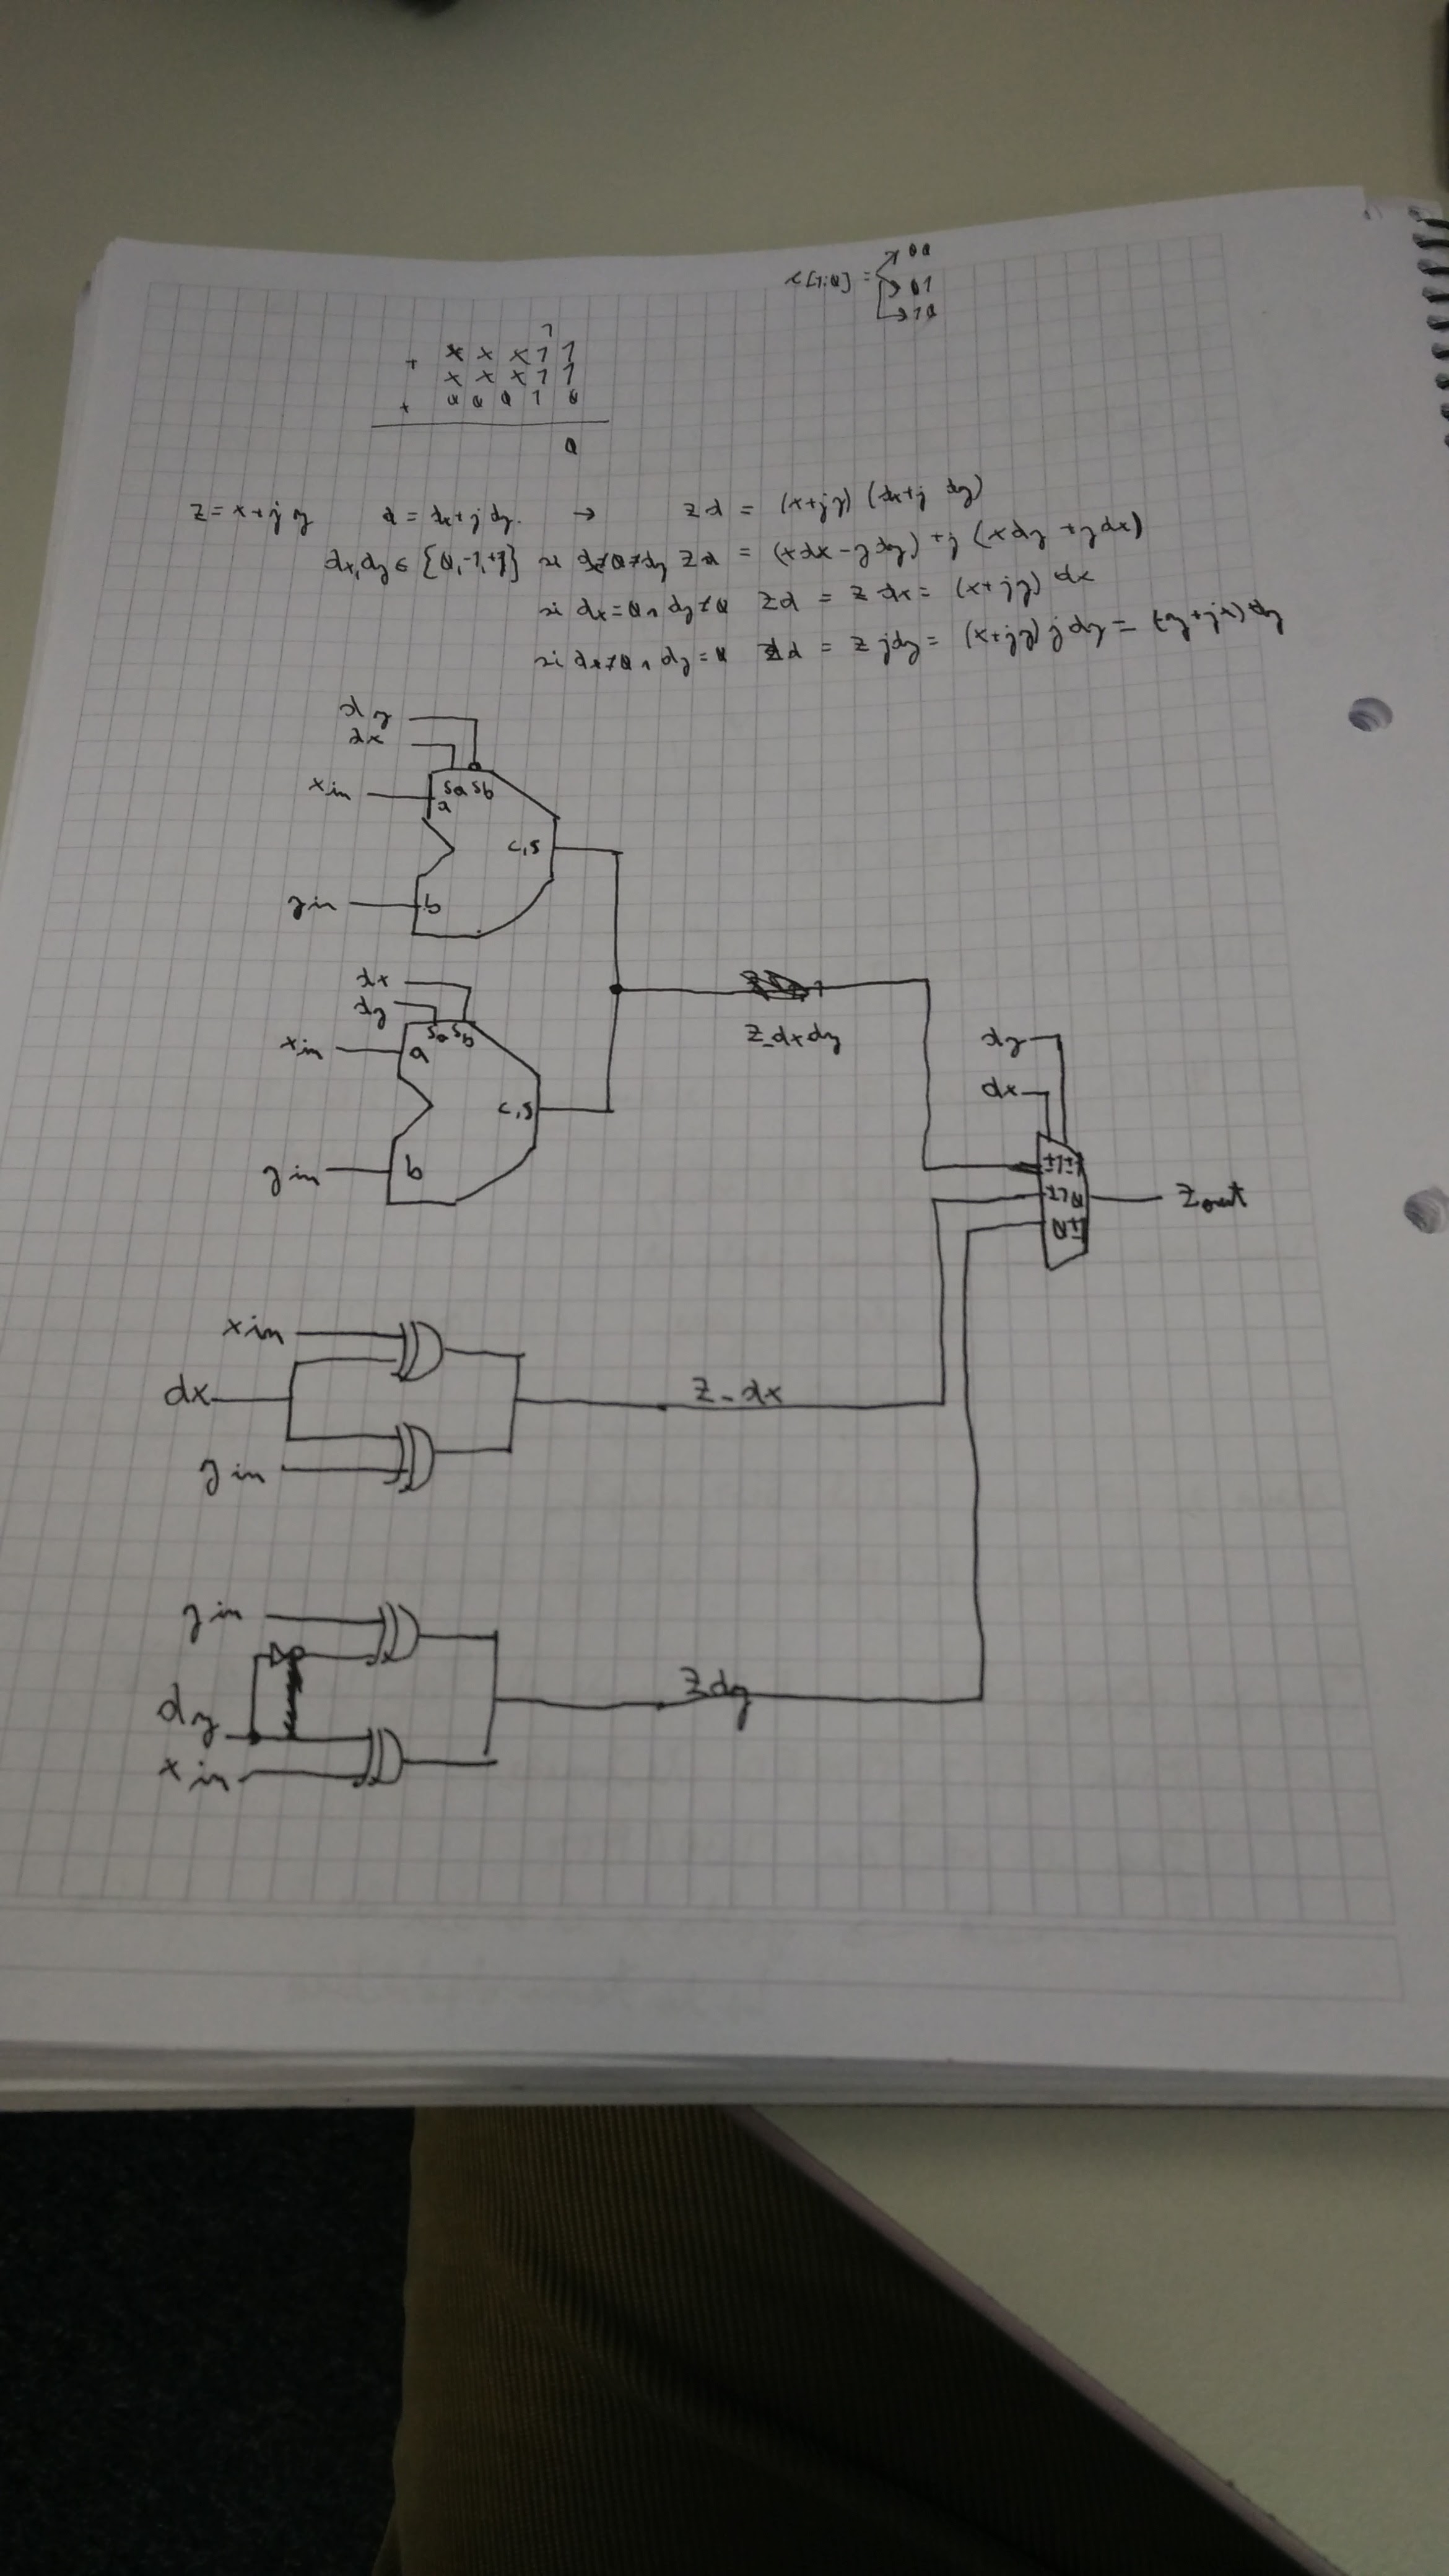 c[1:0] = 00
01
10
1
+ x x x 1 1
x x x 1 1
+ 0 0 0 1 0
0
z = x + j y d = dx + j dy. → z d = (x + j y) (dx + j dy)
dx, dy ∈ {0, -1, +1} si dx ≠ 0 ≠ dy z d = (x dx - y dy) + j (x dy + y dx)
si dx = 0 ∧ dy ≠ 0 z d = z dx = (x + j y) dx
si dx ≠ 0 ∧ dy = 0 z d = z j dy = (x + j y) j dy = (-y + j x) dy
dy
dx
x in
sa sb
a
c, s
y in
b
dx
dy
sa sb
x in
a
c, s
y in
b
z_dxdy
dy
dx
±1±1
±1 0
0 ±1
z out
x in
dx
z_dx
y in
y in
dy
z dy
x in